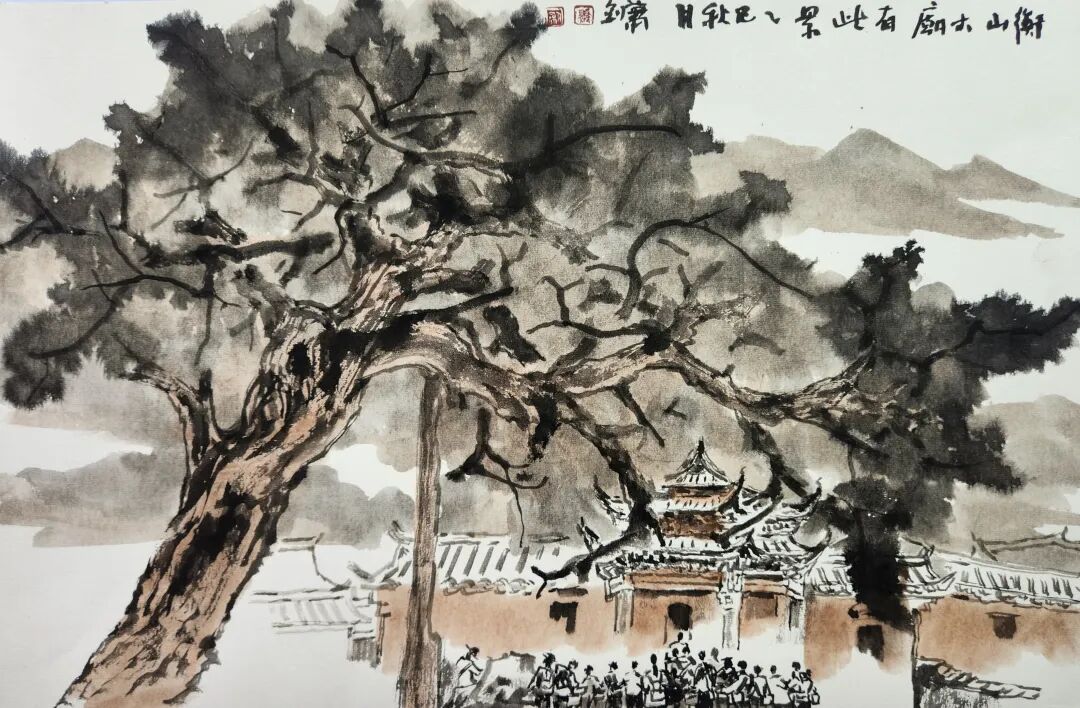 衡山大廟有此景乙巳秋月